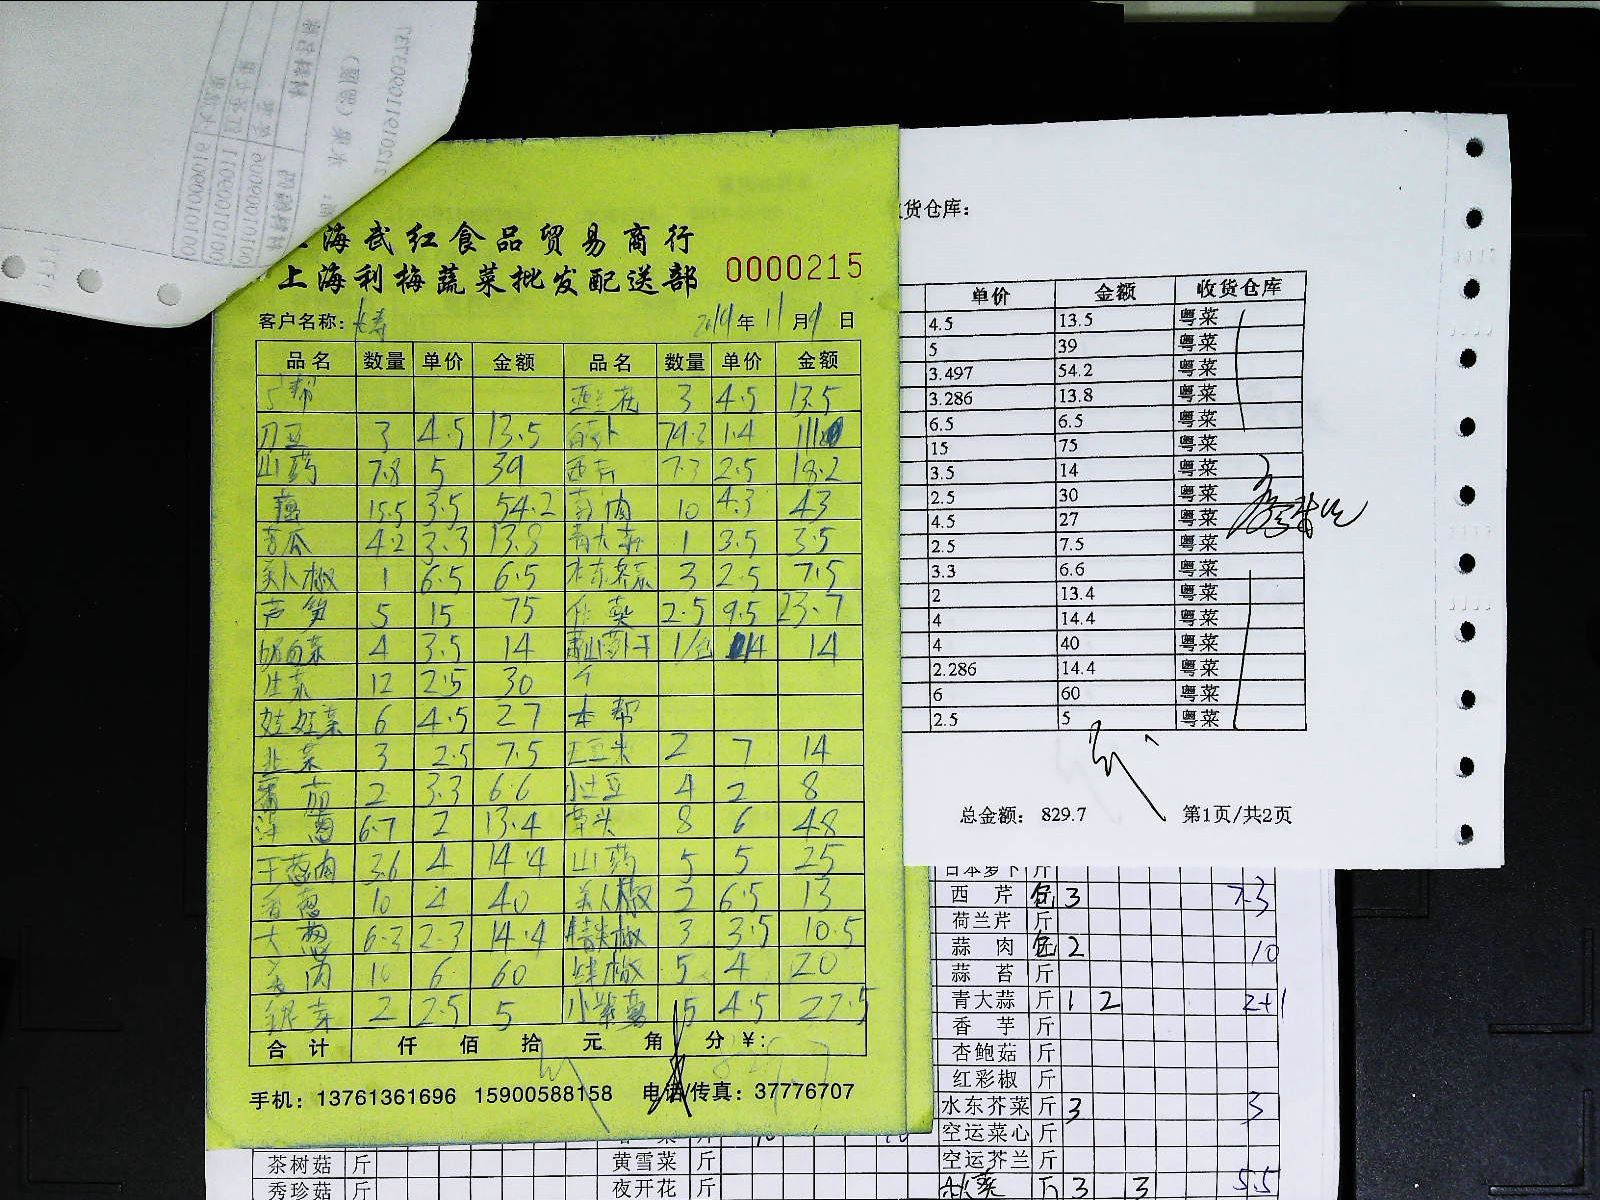 海武红食品贸易商行
上海利梅蔬菜批发配送部 0000215
客户名称： 长寿 2014年11月9日
品名 数量 单价 金额 品名 数量 单价 金额
西兰花 3 4.5 13.5
刀豆 3 4.5 13.5 白萝卜 79.3 1.4 111
山药 7.8 5 39 西芹 7.3 2.5 18.2
藕 15.5 3.5 54.2 蒜肉 10 4.3 43
苦瓜 4.2 3.3 13.8 青大蒜 1 3.5 3.5
美人椒 1 6.5 6.5 水东芥菜 3 2.5 7.5
芦笋 5 15 75 2.5 9.5 23.7
4 3.5 14 萧山萝卜干 1/包 14 14
生菜 12 2.5 30
娃娃菜 6 4.5 27 本帮
韭菜 3 2.5 7.5 毛豆米 2 7 14
番茄 2 3.3 6.6 小土豆 4 2 8
洋葱 6.7 2 13.4 草头 8 6 48
干葱肉 3.6 4 14.4 山药 5 5 25
香葱 10 4 40 美人椒 2 6.5 13
大葱 6.3 2.3 14.4 青尖椒 3 3.5 10.5
姜肉 10 6 60 5 4 20
银芽 2 2.5 5 小紫薯 5 4.5 22.5
合计 仟 佰 拾 元 角 分 ￥：
手机：13761361696 15900588158 电话/传真：37776707
货仓库：
单价 金额 收货仓库
4.5 13.5 粤菜
5 39 粤菜
3.497 54.2 粤菜
3.286 13.8 粤菜
6.5 6.5 粤菜
15 75 粤菜
3.5 14 粤菜
2.5 30 粤菜
4.5 27 粤菜
2.5 7.5 粤菜
3.3 6.6 粤菜
2 13.4 粤菜
4 14.4 粤菜
4 40 粤菜
2.286 14.4 粤菜
6 60 粤菜
2.5 5 粤菜
总金额： 829.7 第1页/共2页
日本萝卜 斤
西芹 包 3 7.3
荷兰芹 斤
蒜肉 包 2 10
蒜苔 斤
青大蒜 斤 1 2 2+1
香芋 斤
杏鲍菇 斤
红彩椒 斤
水东芥菜 斤 3 3
空运菜心 斤
茶树菇 斤 黄雪菜 斤 空运芥兰 斤
秀珍菇 斤 夜开花 斤 3 3 5.5